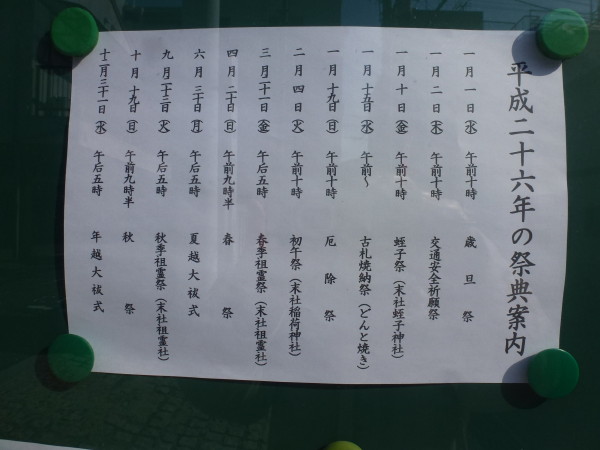 平成二十六年の祭典案内
一月一日㊌ 午前十時 歳旦祭
一月二日㊍ 午前十時 交通安全祈願祭
一月十日㊎ 午前十時 蛭子祭（末社蛭子神社）
一月十五日㊌ 午前〜 古札焼納祭（どんと焼き）
一月十九日㊐ 午前十時 厄除祭
二月四日㊋ 午前十時 初午祭（末社稲荷神社）
三月二十一日㊎ 午后五時 春季祖霊祭（末社祖霊社）
四月二十日㊐ 午前九時半 春祭
六月三十日㊊ 午后五時 夏越大祓式
九月二十三日㊋ 午后五時 秋季祖霊祭（末社祖霊社）
十月十九日㊐ 午前九時半 秋祭
十二月三十一日㊌ 午后五時 年越大祓式